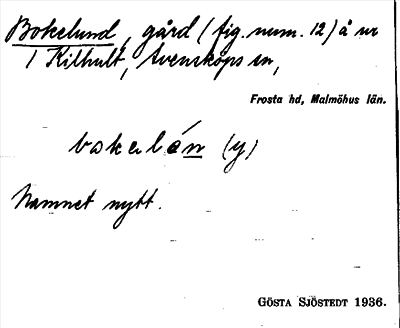 Bokelund, gård (fig. num. 12) å nr
1 Kilhult, Svensköps sn,
Frosta hd, Malmöhus län.
bokelán (y)
Namnet nytt.
GÖSTA SJÖSTEDT 1936.